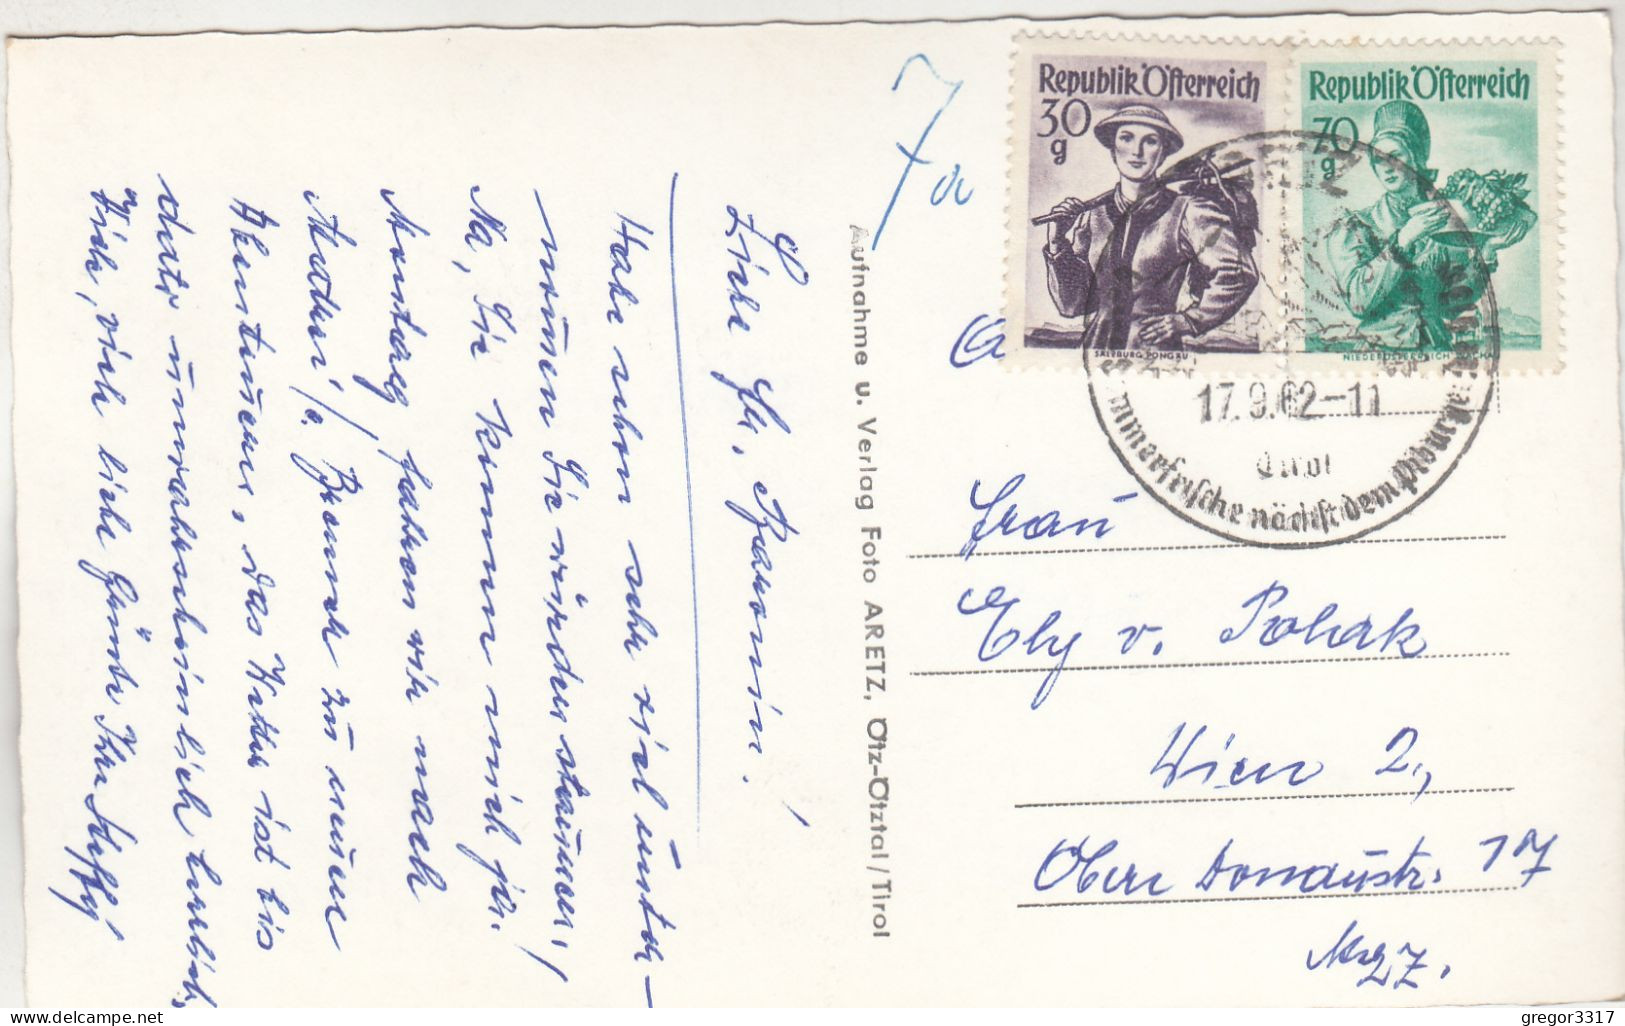 Liebe Fr. Baronin!
Habe schon sehr viel unter-
nommen Sie würden staunen!
Na, Sie kennen mich ja.
Montag fahren wir nach
Brenner zu einem
Abenteuer, das Wetter ist bis
dato unwahrscheinlich herrlich,
Viele, viele liebe Grüße Ihre Steffi
Aufnahme u. Verlag Foto ARETZ, Ötz-Ötztal/Tirol
7a
Republik Österreich
30 g
SALZBURG PONGAU
Republik Österreich
70 g
NIEDERÖSTERREICH WACHAU
17.9.62-11
Tirol
Sommerfrische nächst dem Piburger
Frau
Elly v. Polak
Wien 2.,
Obere Donaustr. 17
gregor3317